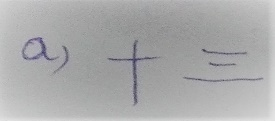 a) 十三